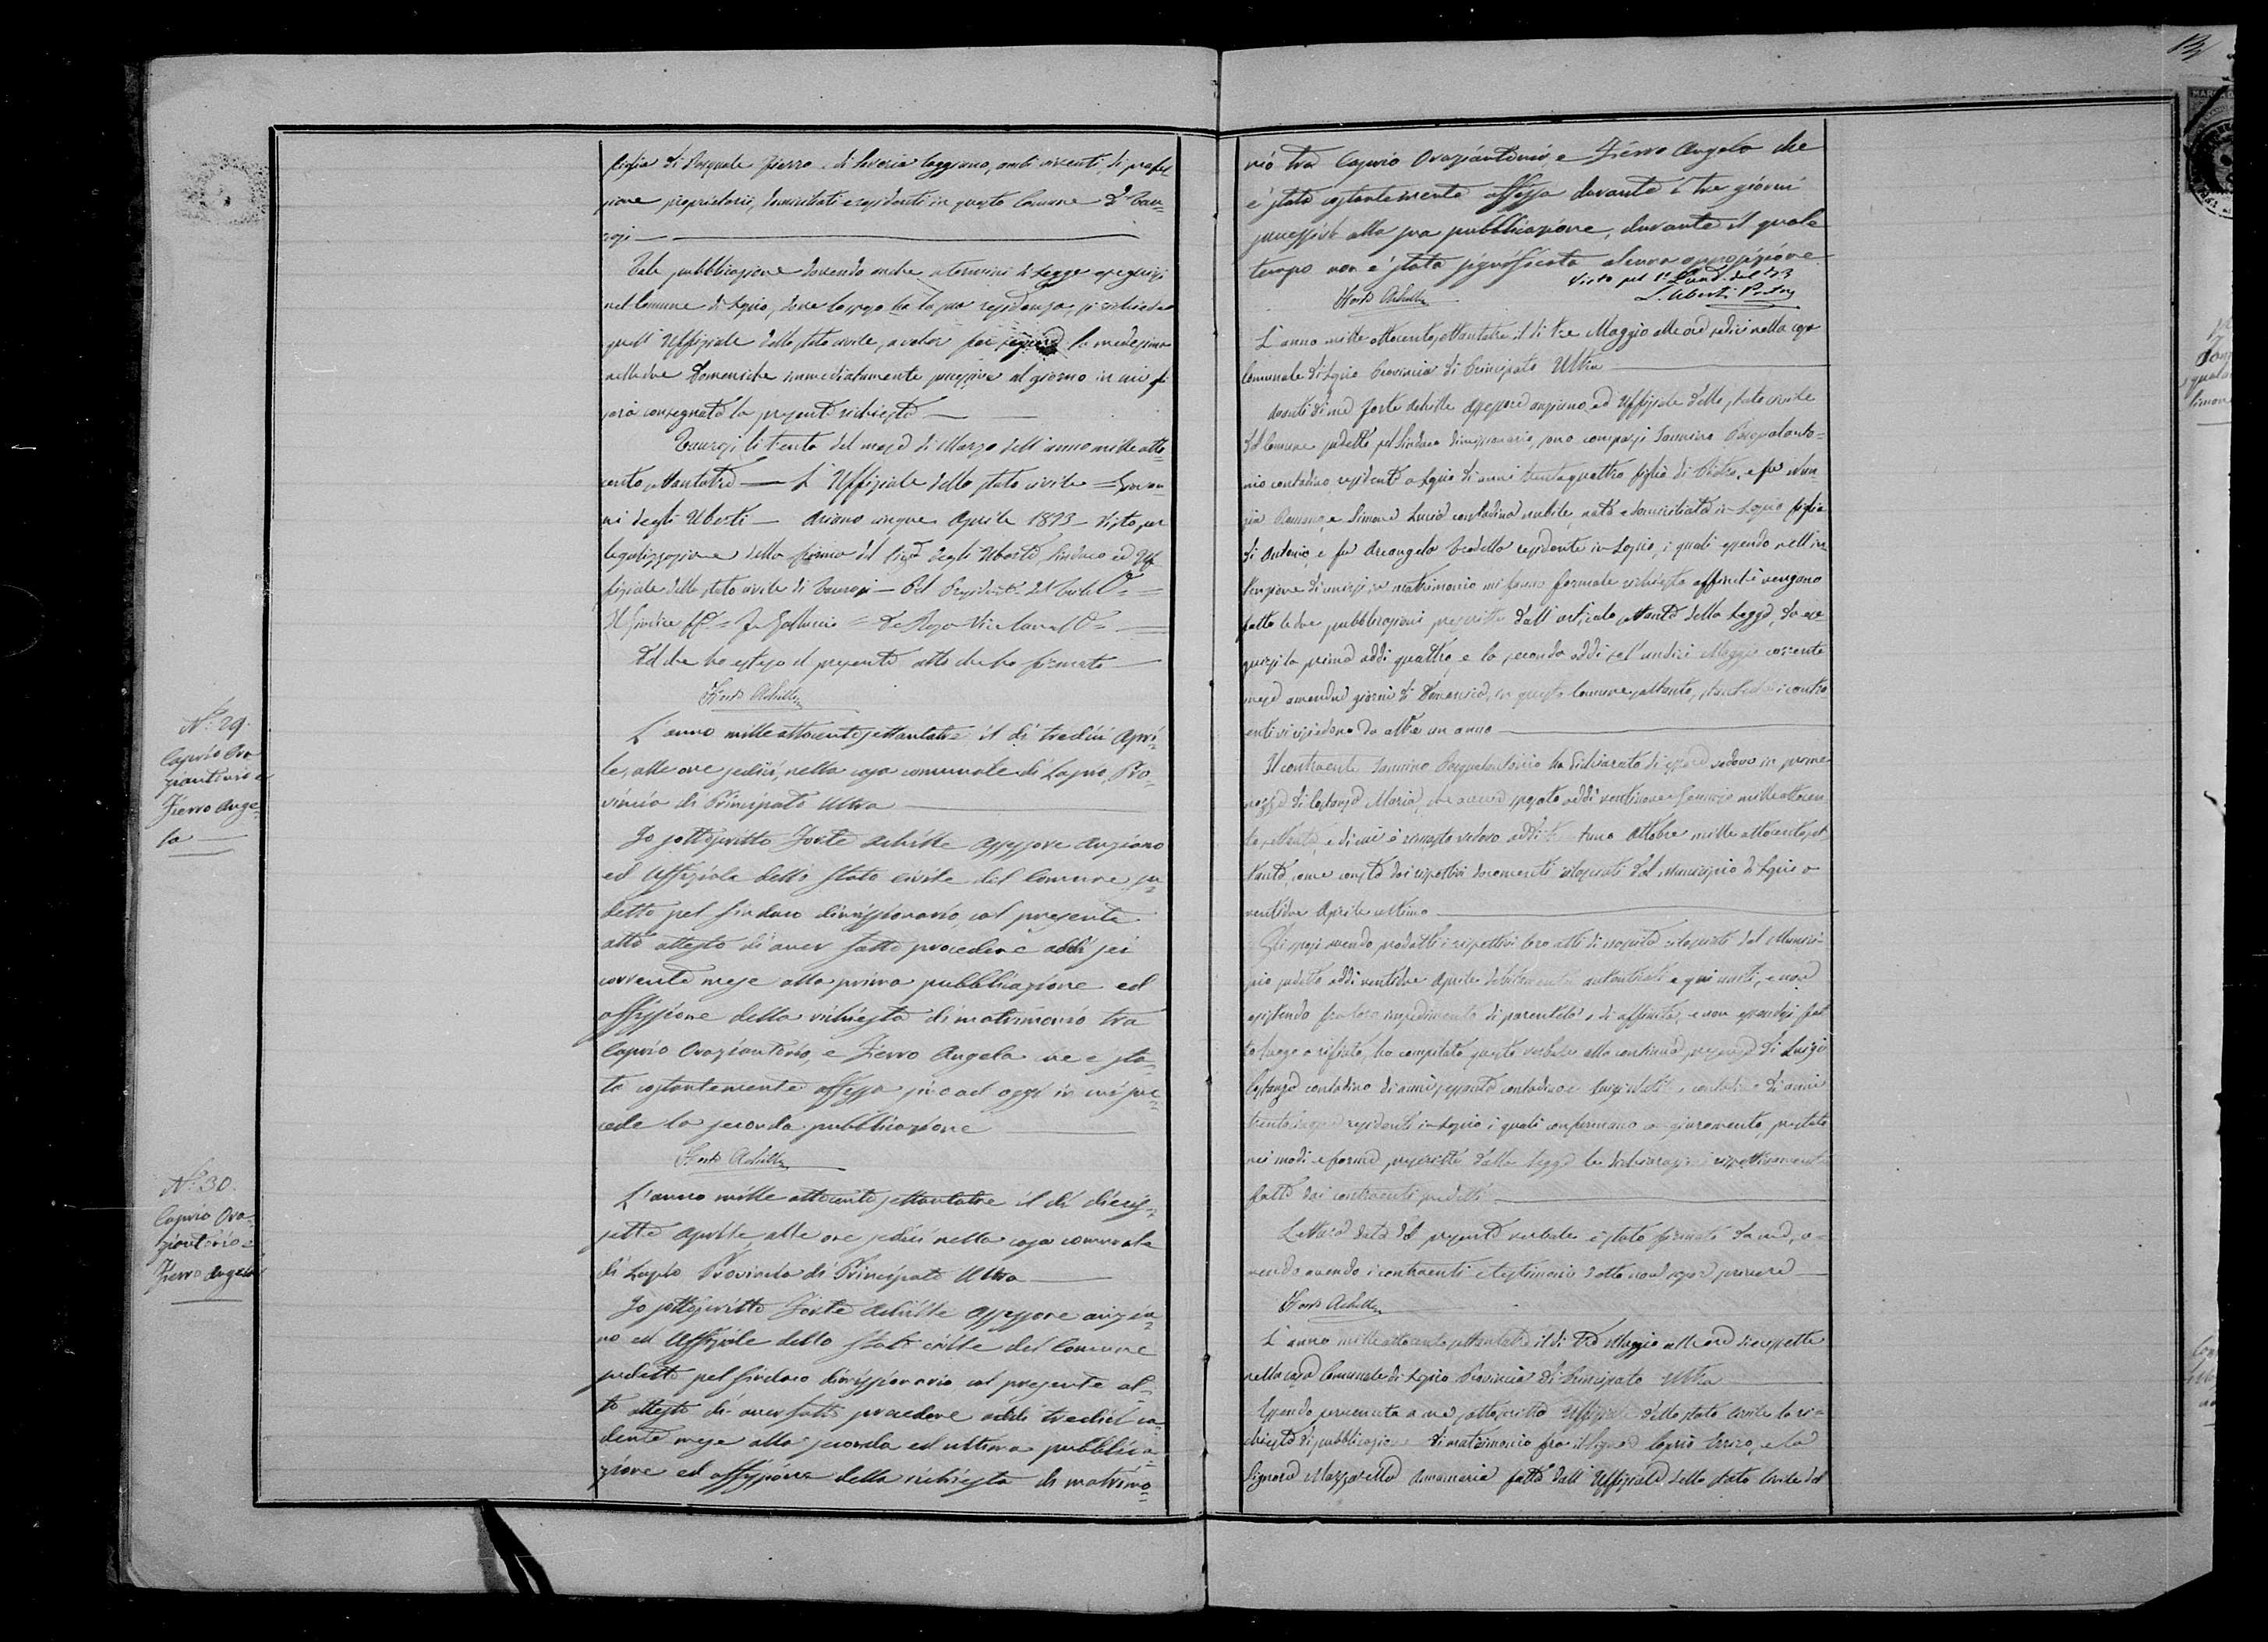 figlia di Pasquale Fierro e di Saveria Caggiano, ambi viventi, di profes
sione proprietarii, domiciliati e residenti in questo Comune di Tau=
rasi
Tale pubblicazione dovendo anche a termini di Legge eseguirsi
nel Comune di Lapio, dove lo sposo ha la sua residenza, si richiede a
quell' Uffiziale dello stato civile, a voler far seguire la medesima
nelle due Domeniche immediatamente successive al giorno in cui gli
sarà consegnata la presente richiesta
Taurasi li trenta del mese di Marzo dell'anno mille otto=
cento settantatre — L'Uffiziale dello stato civile = Giovan=
ni degli Uberti — Ariano cinque Aprile 1873 — Visto per
legalizzazione della firma del Sigr degli Uberti, Sindaco ed Uf
fiziale dello stato civile di Taurasi — Pel Presidente del Trible =
Il Giudice ff. = = De Vice Canc.
Ed ho esteso il presente atto che ho firmato
Forte Achille
N.° 29.
Caprio Ora
ziantonio e
Fierro Ange
la
L'anno mille ottocento settantatre il dì tredici Apri=
le, alle ore sedici, nella casa comunale di Lapio, Pro=
vincia di Principato Ultra
Io sottoscritto Forte Achille Assessore Anziano
ed Uffiziale dello Stato civile del Comune su=
detto pel Sindaco dimissionario, col presente
atto attesto di aver fatto procedere addì sei
corrente mese alla prima pubblicazione ed
affissione della richiesta di matrimonio tra
Caprio Oraziantonio, e Fierro Angela che è sta=
ta costantemente affissa sino ad oggi in cui suc=
cede la seconda pubblicazione
Forte Achille
N.° 30.
Caprio Ora=
ziantonio e
Fierro Angela
L'anno mille ottocento settantatre il dì dicias=
sette Aprile, alle ore sedici nella casa comunale
di Lapio Provincia di Principato Ultra
Io sottoscritto Forte Achille Assessore anzia=
no ed Uffiziale dello Stato civile del Comune
sudetto pel Sindaco dimissionario, col presente at=
to attesto di aver fatto procedere addì tredici ca=
dente mese alla seconda ed ultima pubblica=
zione ed affissione della richiesta di matrimo=
nio tra Caprio Oraziantonio, e Fierro Angela che
è stata costantemente affissa durante i tre giorni
successivi alla sua pubblicazione, durante il quale
tempo non è stata significata alcuna opposizione
Visto pel 1° del 73
L. Uberti Pretore
Forte Achille
L'anno mille ottocento settantatre il dì tre Maggio alle ore sedici nella casa
Comunale di Lapio Provincia di Principato Ultra
Avanti di me Forte Achille Assessore anziano, ed Uffiziale dello stato civile
del Comune sudetto pel Sindaco dimissionario, sono comparsi Iannino Pasqualanto=
nio contadino residente a Lapio di anni trentaquattro figlio di Pietro, e fu Nun=
zia Romano, e Simone Lucia contadina nubile, nata e domiciliata in Lapio figlia
di Antonio, e fu Arcangela residente in Lapio, i quali essendo nell'in=
tenzione di unirsi in matrimonio mi fanno formale richiesta affinchè vengano
fatte le due pubblicazioni prescritte dall'articolo settanta della Legge, da ese=
guirsi la prima addì quattro, e la seconda addì undici Maggio corrente
mese amendue giorni di Domenica, in questo Comune soltanto, perchè i contra
enti vi risiedono da oltre un anno
Il contraente Iannino Pasqualantonio ha dichiarato di essere vedovo in prime
nozze di Costanza Maria, che aveva sposato addì ventinove Gennaio mille ottocen
to settanta, e di cui è rimasto vedovo addì Ottobre mille ottocento set
tanta, come consta dai rispettivi documenti rilasciati dal Municipio di Lapio a
ventidue Aprile ultimo
Gli sposi avendo prodotti i rispettivi loro atti di nascita rilasciati dal Munici=
pio sudetto addì ventidue Aprile debitamente autenticati e qui uniti, e non
esistendo fra loro impedimento di parentela o di affinità, e non essendosi fat
to luogo a rifiuto, ho compilato questo verbale alla continua presenza di Luigi
Costanza contadino di anni sessanta contadino e Luigi contadino di anni
trentacinque residenti in Lapio i quali confermano con giuramento prestato
nei modi e forme prescritte dalla Legge le dichiarazioni rispettivamente
fatte dai contraenti sudetti
Lettura data del presente verbale è stato firmato da me, a=
vendo i contraenti e testimonii detto non saper scrivere
Forte Achille
L'anno mille ottocento settantatre il dì tre Maggio alle ore diciassette
nella casa Comunale di Lapio Provincia di Principato Ultra
Essendo pervenuta a me sottoscritto Uffiziale dello stato Civile la ri=
chiesta di pubblicazione di matrimonio fra il Signor Caprio Errico, e la
Signora Mazzarella Annamaria fatta dall'Uffiziale dello stato Civile del